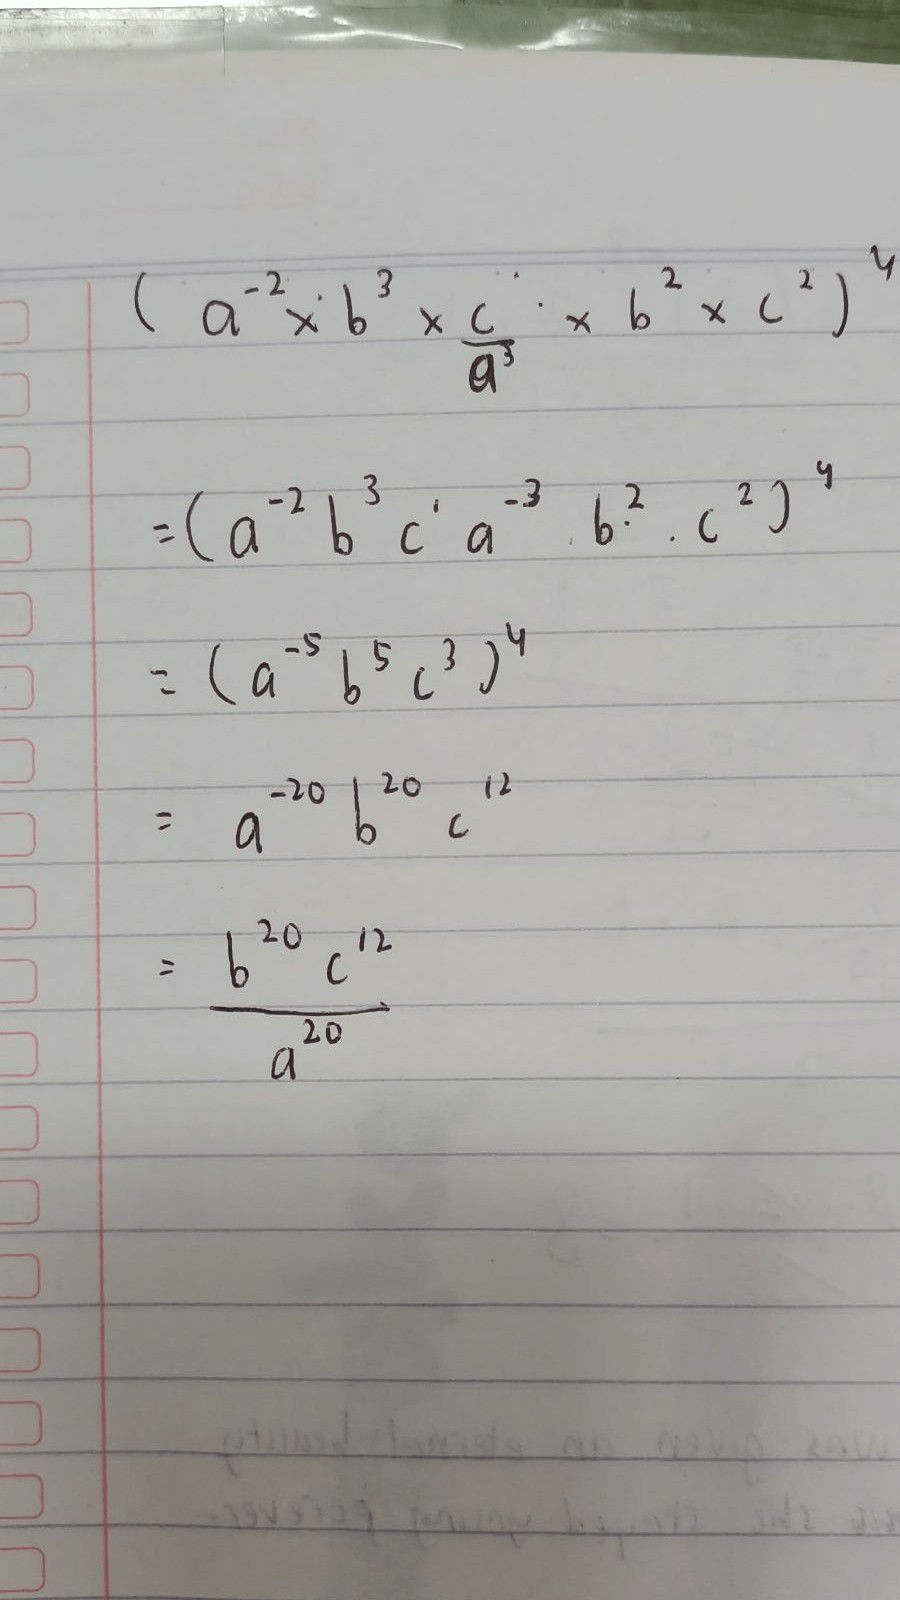 ( a⁻² × b³ × c/a³ × b² × c² )⁴
= ( a⁻² b³ c¹ a⁻³ . b² . c² )⁴
= ( a⁻⁵ b⁵ c³ )⁴
= a⁻²⁰ b²⁰ c¹²
= b²⁰ c¹² / a²⁰